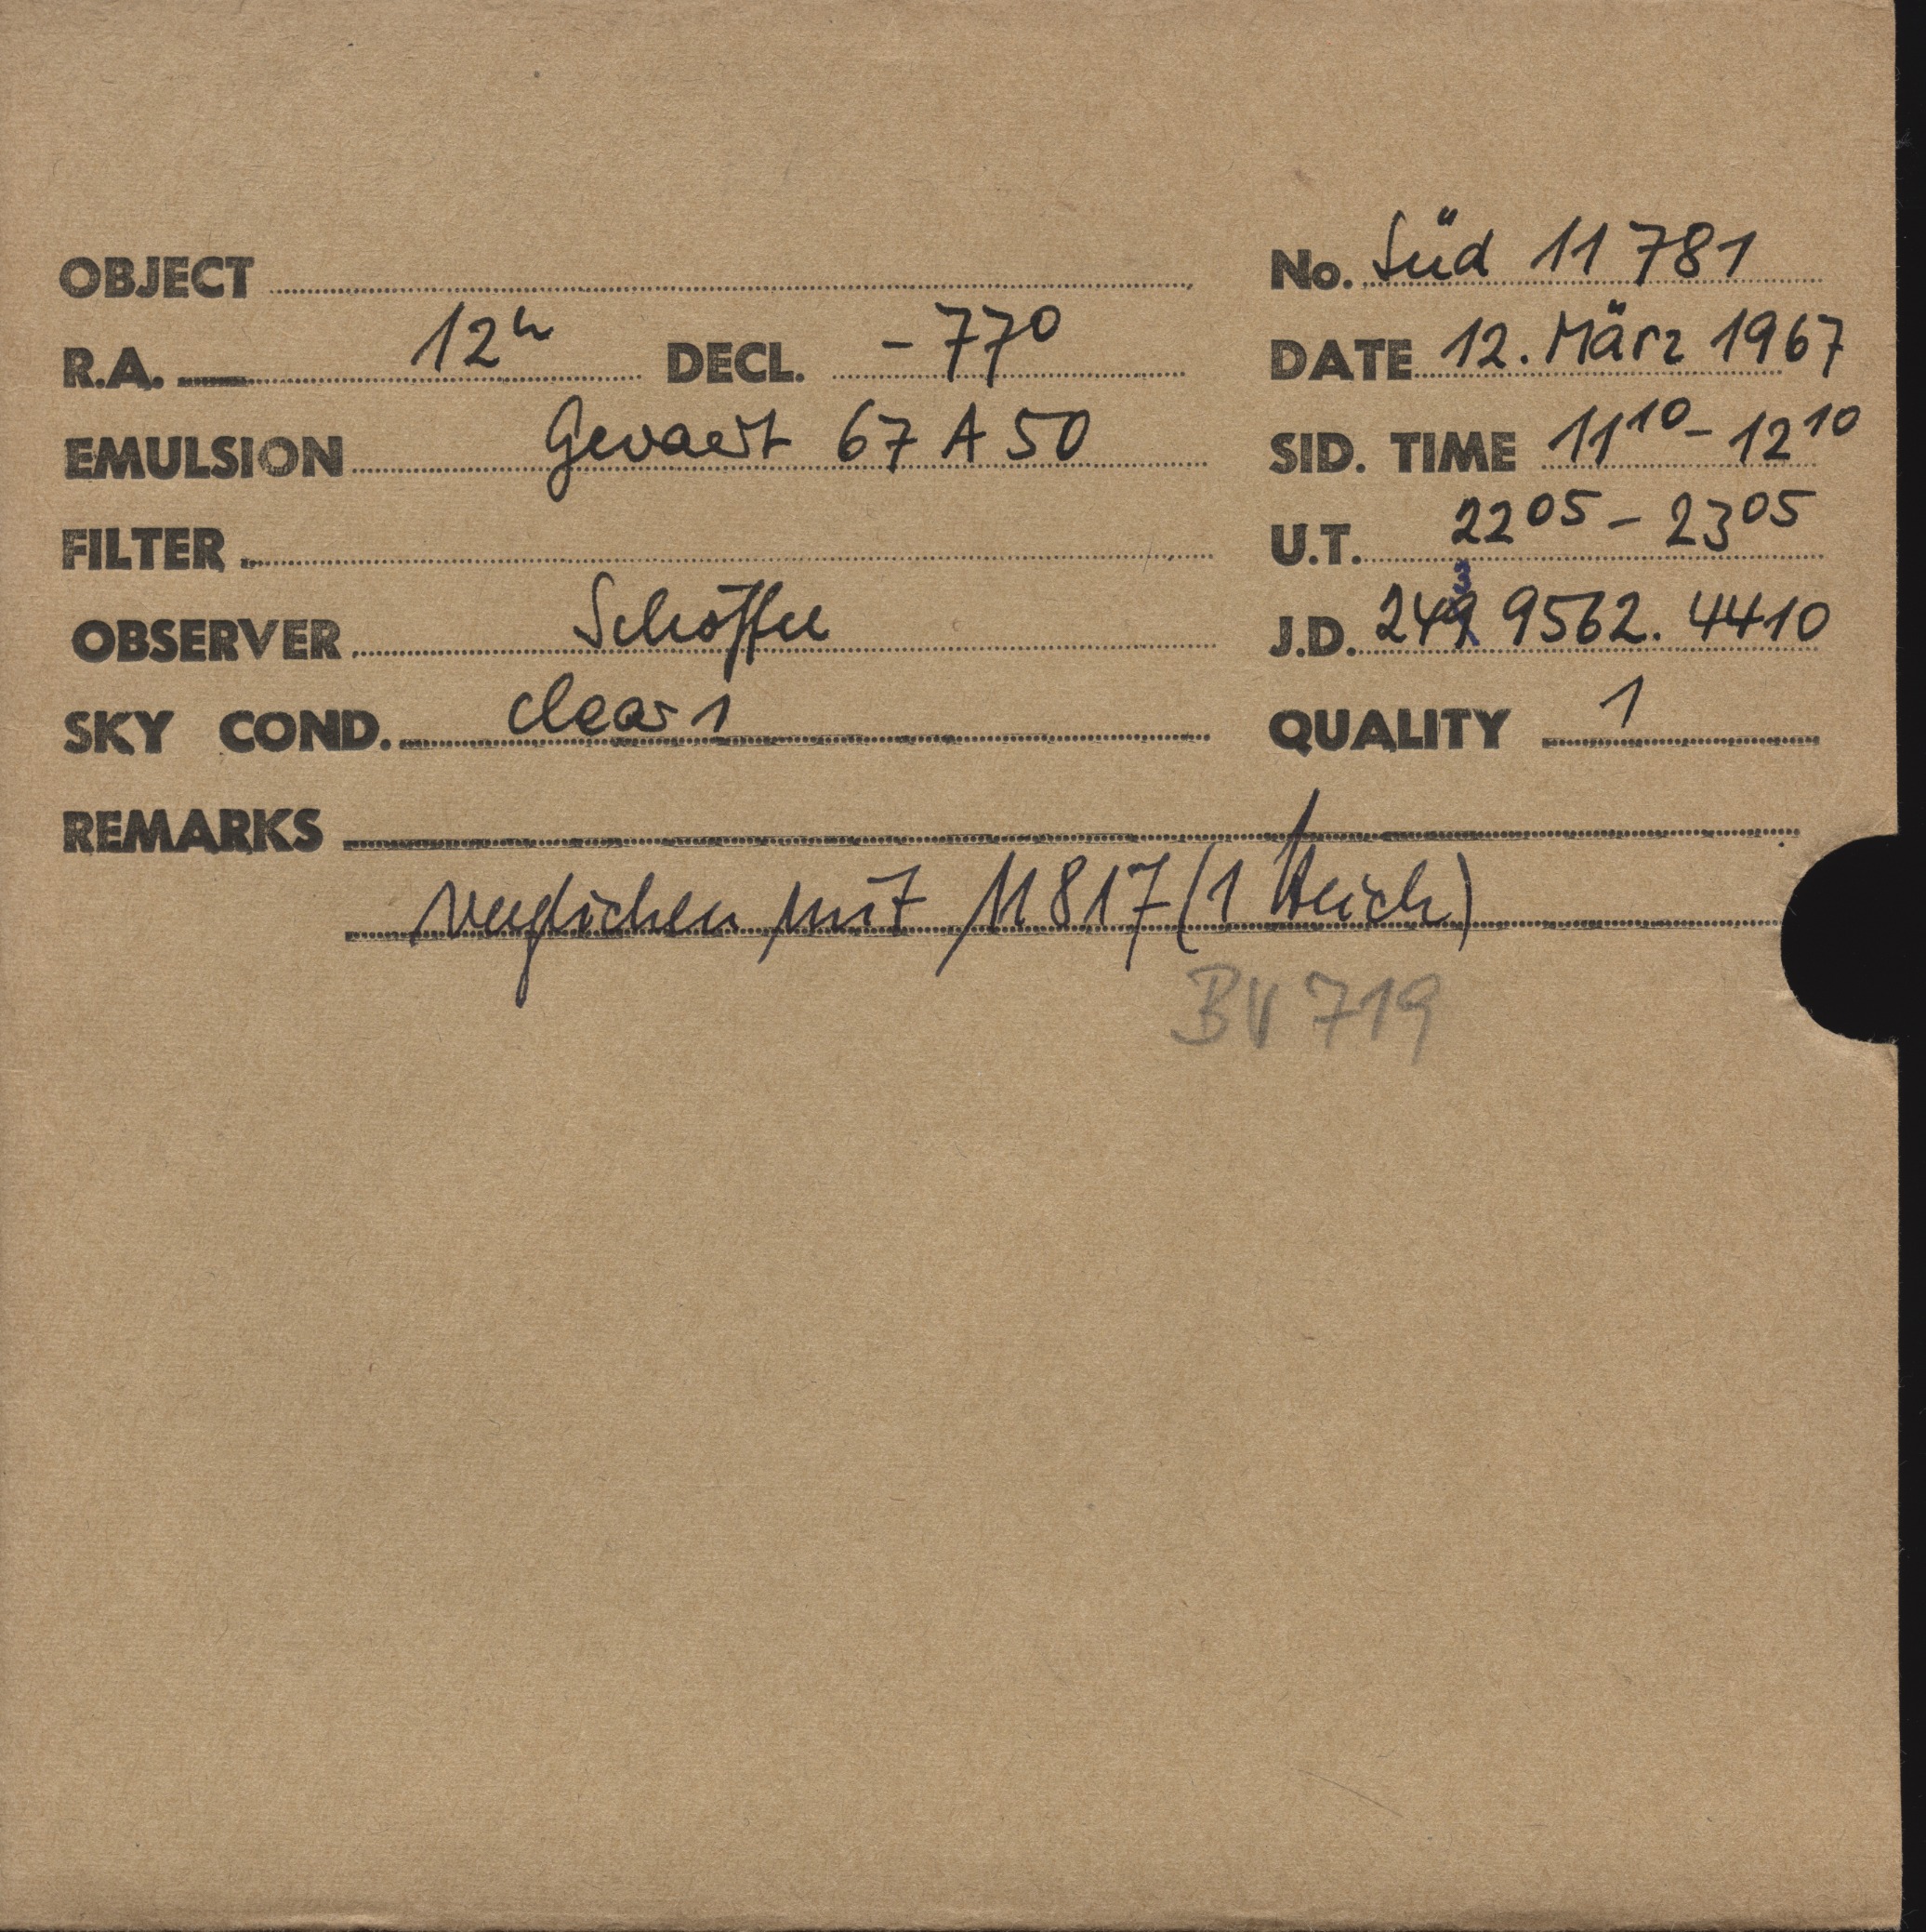 OBJECT No. Süd 11 781
R.A. 12h DECL. -77° DATE 12. März 1967
EMULSION Gevaert 67 A 50 SID. TIME 11 10 - 12 10
FILTER U.T. 22 05 - 23 05
OBSERVER Schöffel J.D. 243 9562. 4410
SKY COND. clear 1 QUALITY 1
REMARKS
verglichen mit 11817 (1 Strich)
BV 719